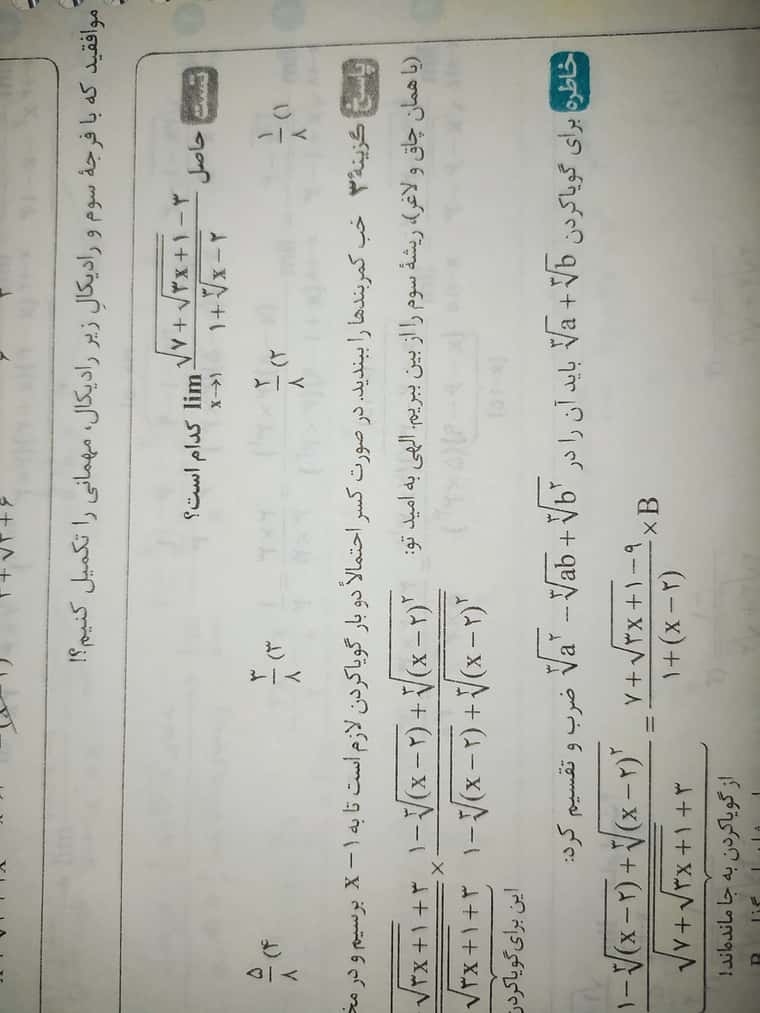 موافقید که با فرجهٔ سوم و رادیکالِ زیر رادیکال، مهمانی را تکمیل کنیم؟!
تست حاصل lim x→۱ (√(۷+√(۳x+۱)) − ۳) / (۱+∛(x−۲)) کدام است؟
۱) ۱/۸ ۲) ۲/۸ ۳) ۳/۸ ۴) ۵/۸
پاسخ گزینهٔ ۳ خب کمربندها را ببندید. در صورت کسر احتمالاً دو بار گویاکردن لازم است تا به x − ۱ برسیم و در
(با همان چاق و لاغر)، ریشهٔ سوم را از بین ببریم. الهی به امید تو:
√(۳x+۱)+۳ / √(۳x+۱)+۳ × (۱−∛(x−۲)+∛(x−۲)^۲) / (۱−∛(x−۲)+∛(x−۲)^۲)
این برای گویاکردن
خاطره برای گویاکردن ∛a + ∛b باید آن را در ∛a^۲ − ∛ab + ∛b^۲ ضرب و تقسیم کرد:
(۱−∛(x−۲)+∛(x−۲)^۲) / (√(۷+√(۳x+۱))+۳) = (۷+√(۳x+۱)−۹) / (۱+(x−۲)) × B
از گویاکردن به جا مانده‌اند!
B